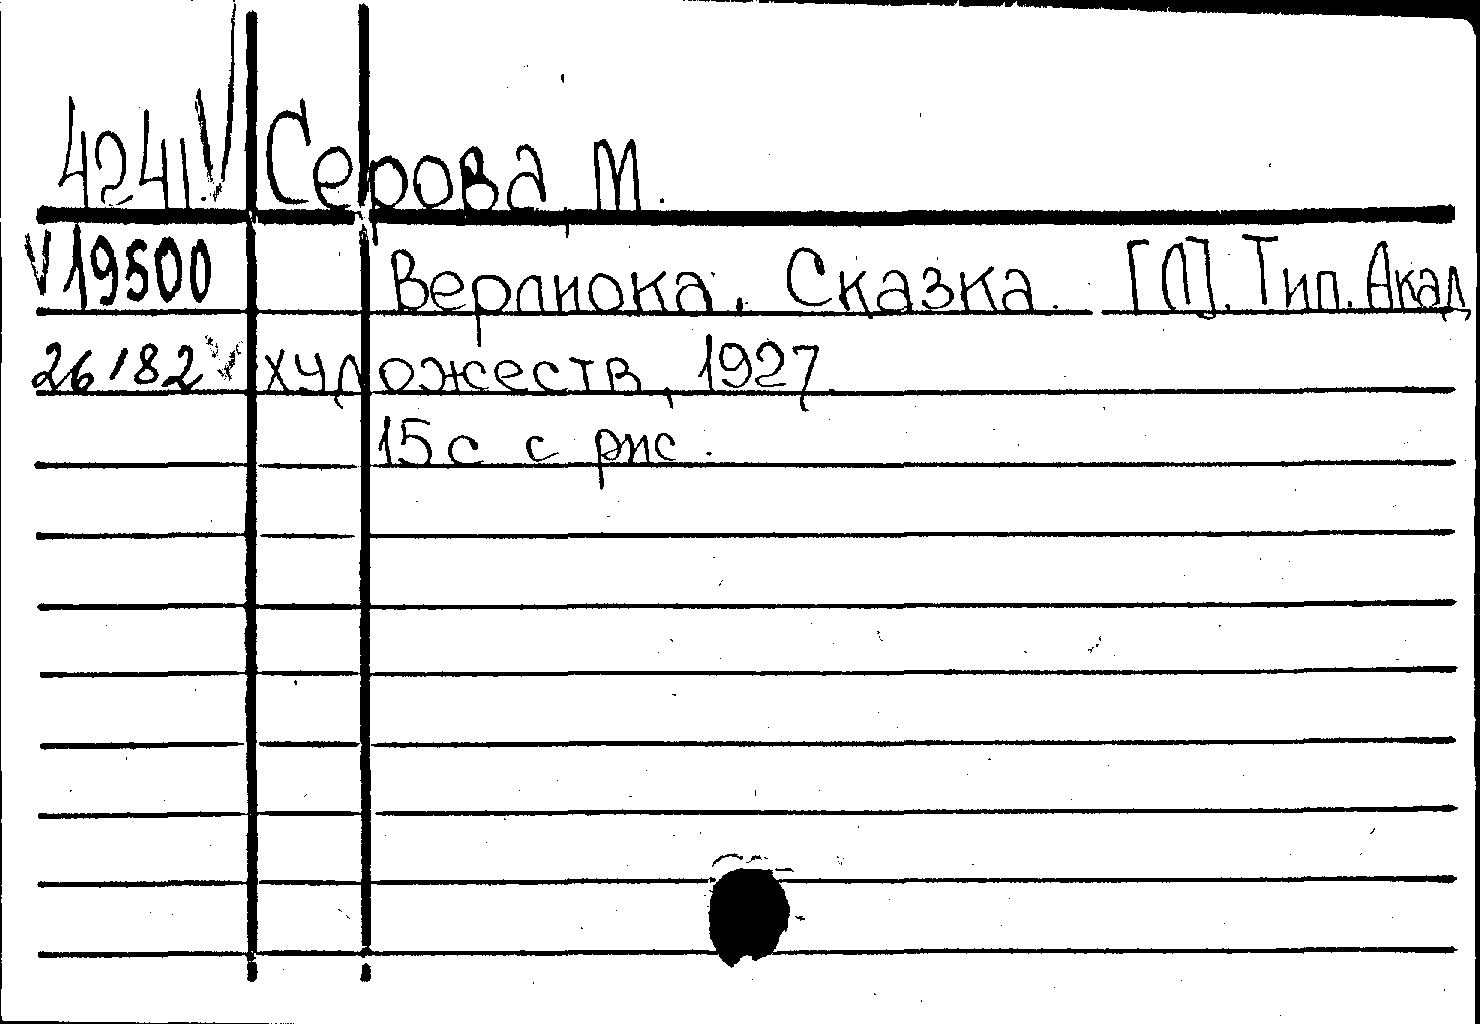 4241 V Серова, М.
V 19500 Верлиока. Сказка. [Л]. Тип. Акад
26182 V художеств, 1927
15 с с рис.